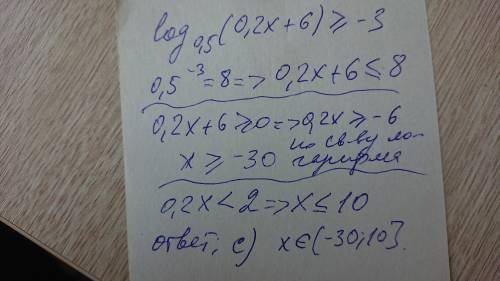 log₀,₅(0,2x+6) ≥ -3
0,5⁻³=8=> 0,2x+6 ≤ 8
0,2x+6 ≥ 0 => 0,2x ≥ -6
x ≥ -30 по св-ву ло-
гарифма
0,2x < 2 => x ≤ 10
ответ, с) x∈(-30;10].